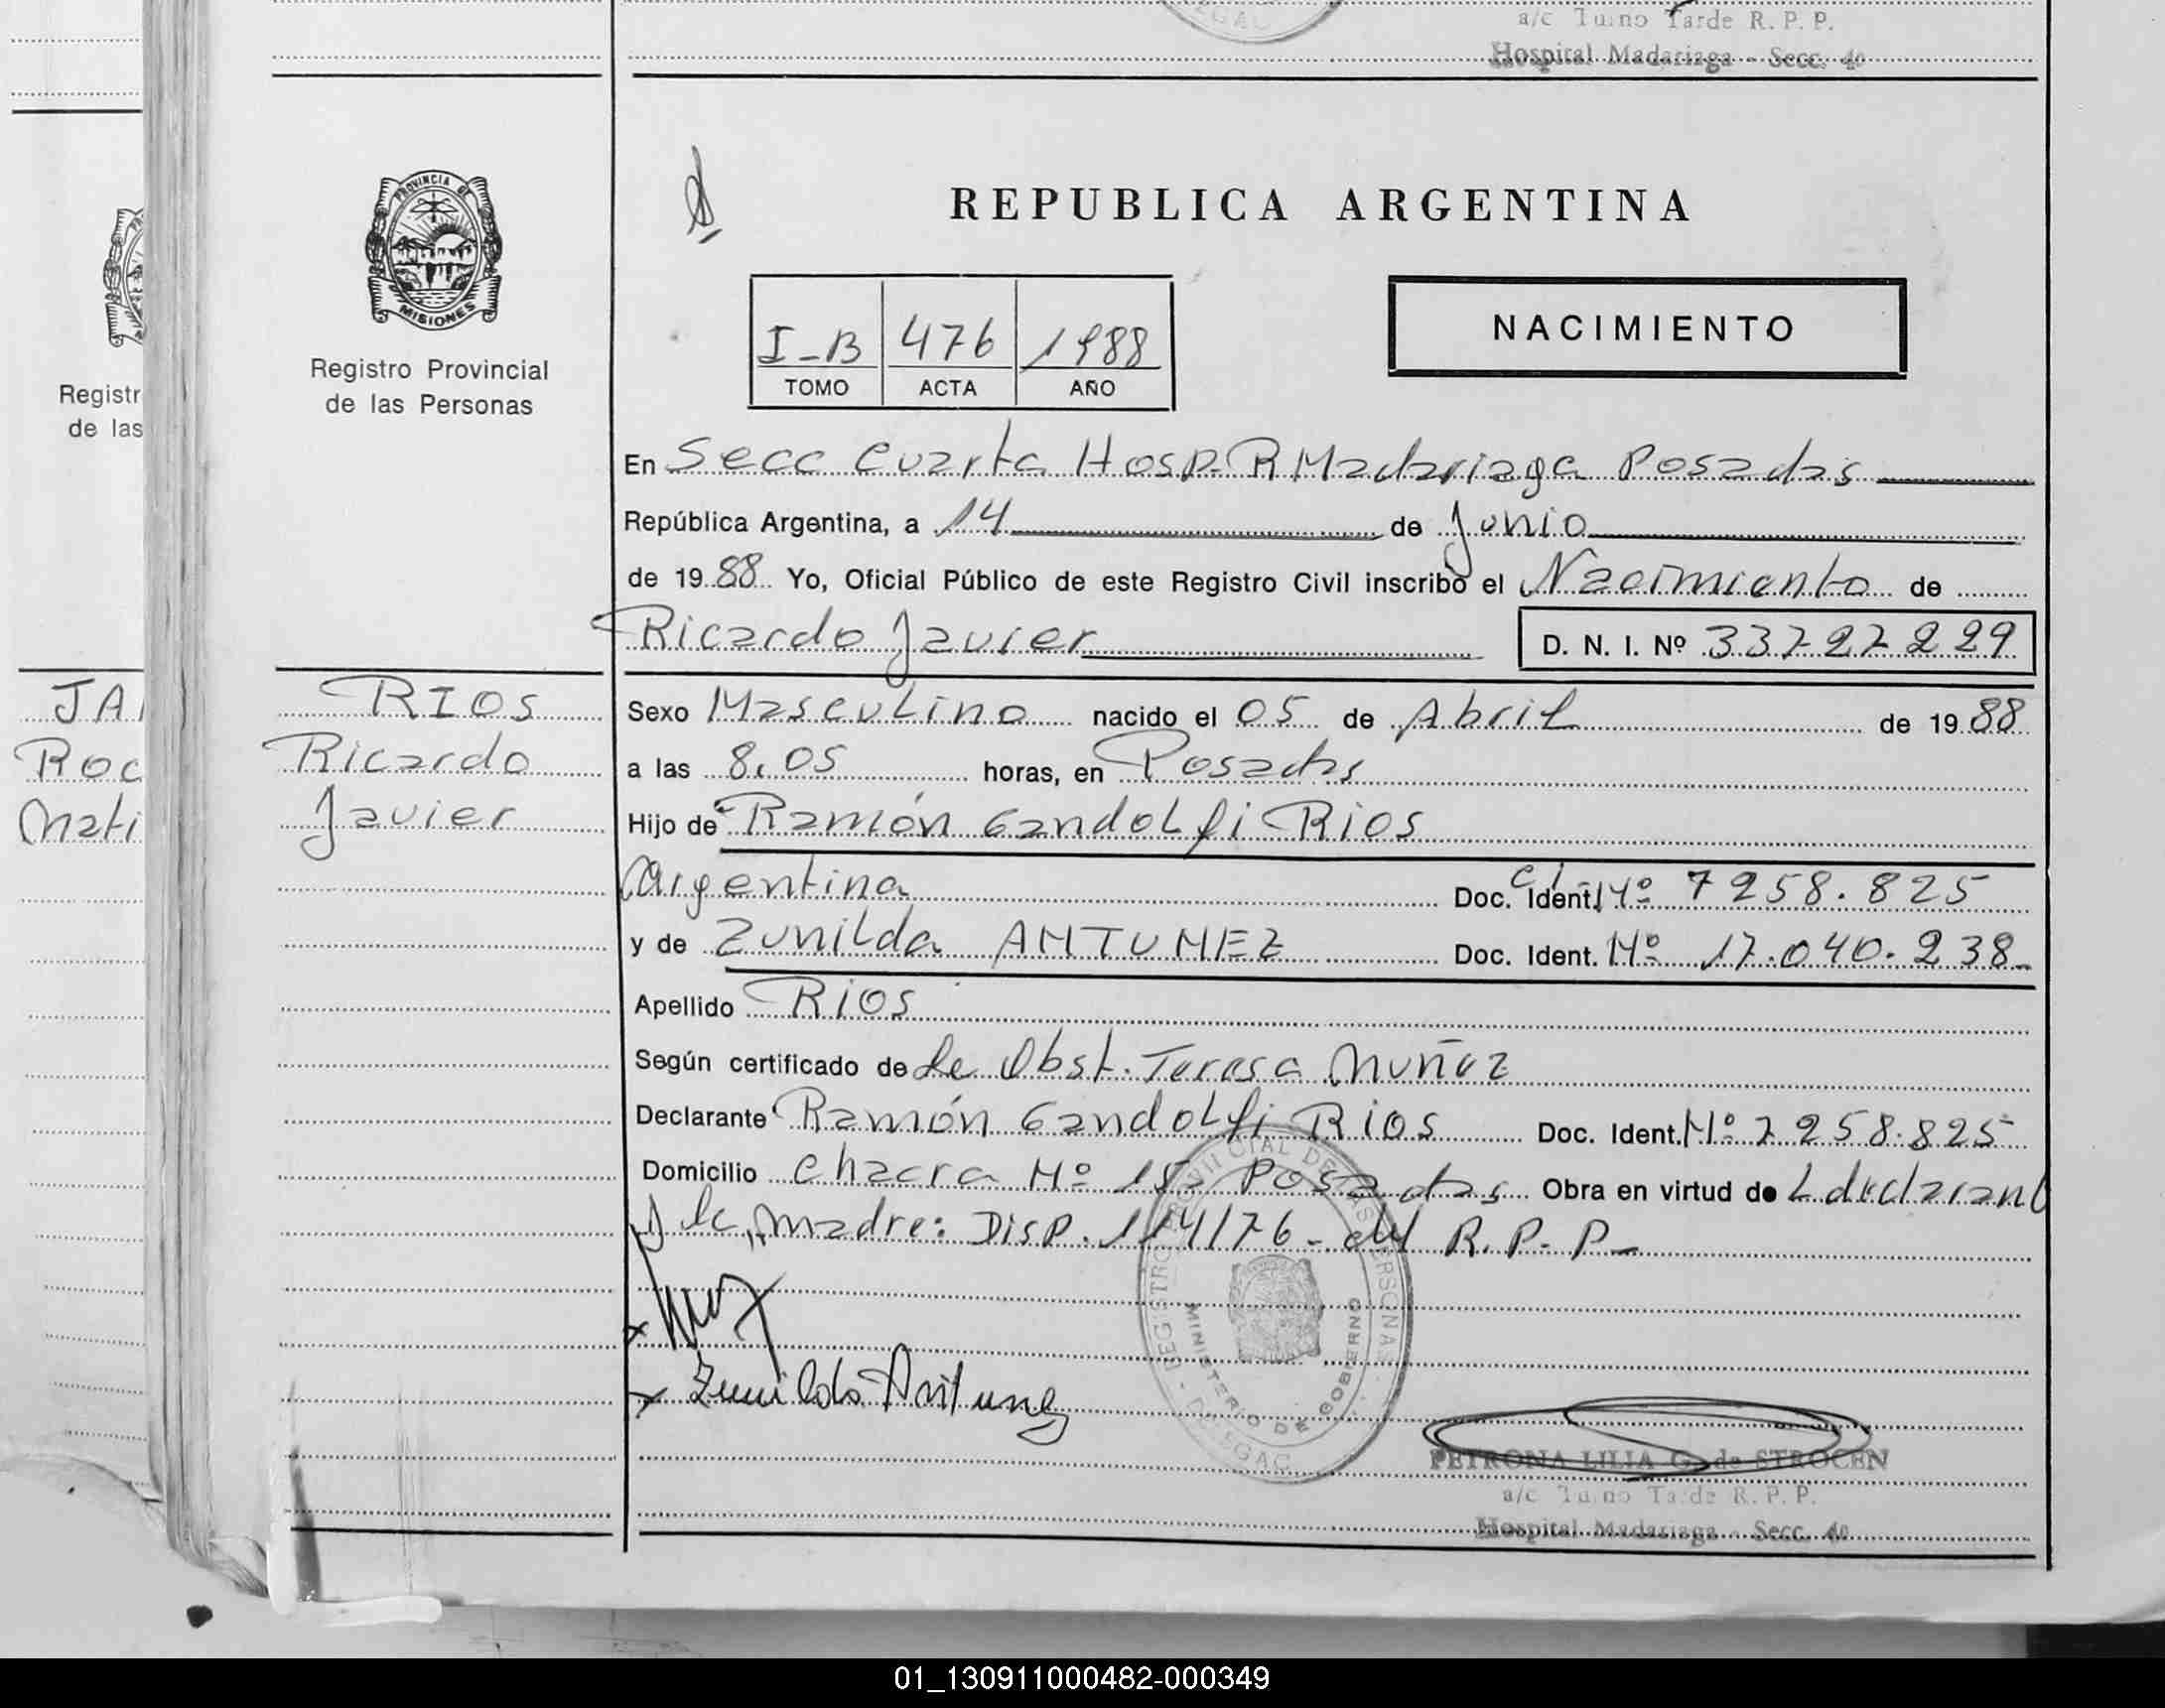 a/c Turno Tarde R. P. P.
Hospital Madariaga - Secc. 4a
PROVINCIA DE
MISIONES
Registro Provincial
de las Personas
Registr
de las
REPUBLICA ARGENTINA
I-B 476 1988
TOMO ACTA AÑO
NACIMIENTO
En Secc Cuarta Hosp. R Madariaga Posadas
República Argentina, a 14 de Junio
de 1988 Yo, Oficial Público de este Registro Civil inscribo el Nacimiento de
Ricardo Javier D. N. I. Nº 33727229
JA
Roc
Mati
RIOS
Ricardo
Javier
Sexo Masculino nacido el 05 de Abril de 1988
a las 8,05 horas, en Posadas
Hijo de Ramón Gandolfi Rios
Argentina Doc. Ident. CI Nº 7258.825
y de Zunilda ANTUNEZ Doc. Ident. Nº 17.040.238-
Apellido Rios
Según certificado de la Obst. Teresa Muñoz
Declarante Ramón Gandolfi Rios Doc. Ident. Nº 7258.825
Domicilio Chacra Nº 15, Posadas Obra en virtud de L declarant
y la madre: Disp. 114/76 - del R. P. P-
REGISTRO PROVINCIAL DE LAS PERSONAS
MINISTERIO DE GOBIERNO
DELEGAC
x
x Zunilda Antunez
PETRONA LILIA G. de STROCEN
a/c Turno Tarde R. P. P.
Hospital Madariaga - Secc. 4a
01_130911000482-000349